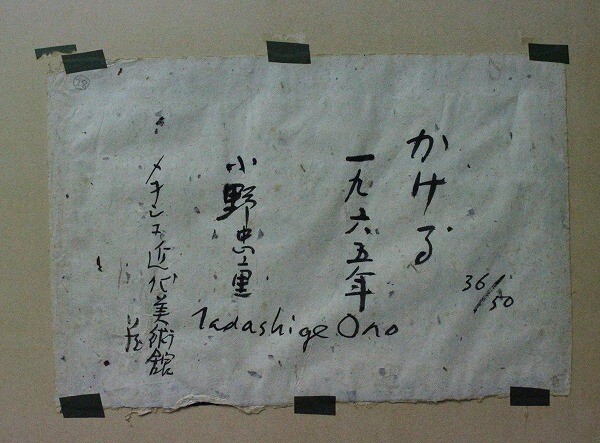 かける
一九六五年
36/50
小野忠重
Tadashige Ono
メキシコ近代美術館
蔵